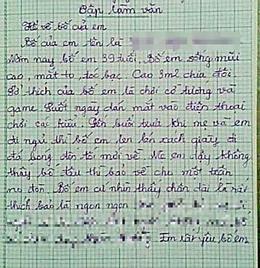 Tập làm văn
Kể về bố của em
Bố của em tên là
Năm nay bố em 39 tuổi. Bố em sống mũi
cao, mắt to tóc bạc. Cao 3m2 chia đôi.
Sở thích của bố em là chơi cờ tướng và
game. Suốt ngày dán mắt vào điện thoại
chơi cá cược. Còn buổi trưa khi mẹ và em
đi ngủ thì bố em lẻn lôn xách giày đi
đá bóng đến tối mới về. Mẹ em dậy không
thấy bố đâu thì bảo về cho một trận
no đòn. Bố em cứ nhìn thấy chân dài là rất
thích bảo là ngon ngon
Em rất yêu bố em